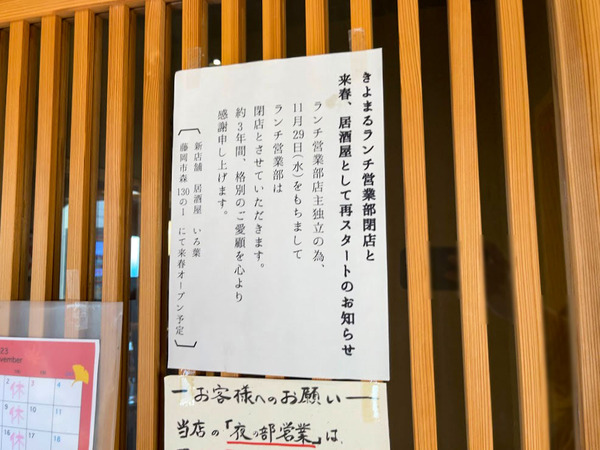 きよまるランチ営業部閉店と
来春、居酒屋として再スタートのお知らせ
ランチ営業部店主独立の為、
11月29日(水)をもちまして
ランチ営業部は
閉店とさせていただきます。
約3年間、格別のご愛顧を心より
感謝申し上げます。
新店舗 居酒屋 いろ葉
藤岡市森130の1 にて来春オープン予定
お客様へのお願い
当店の「夜の部営業」は、
vember
2 休 3 4
9 休 10 11
16 休 17 18